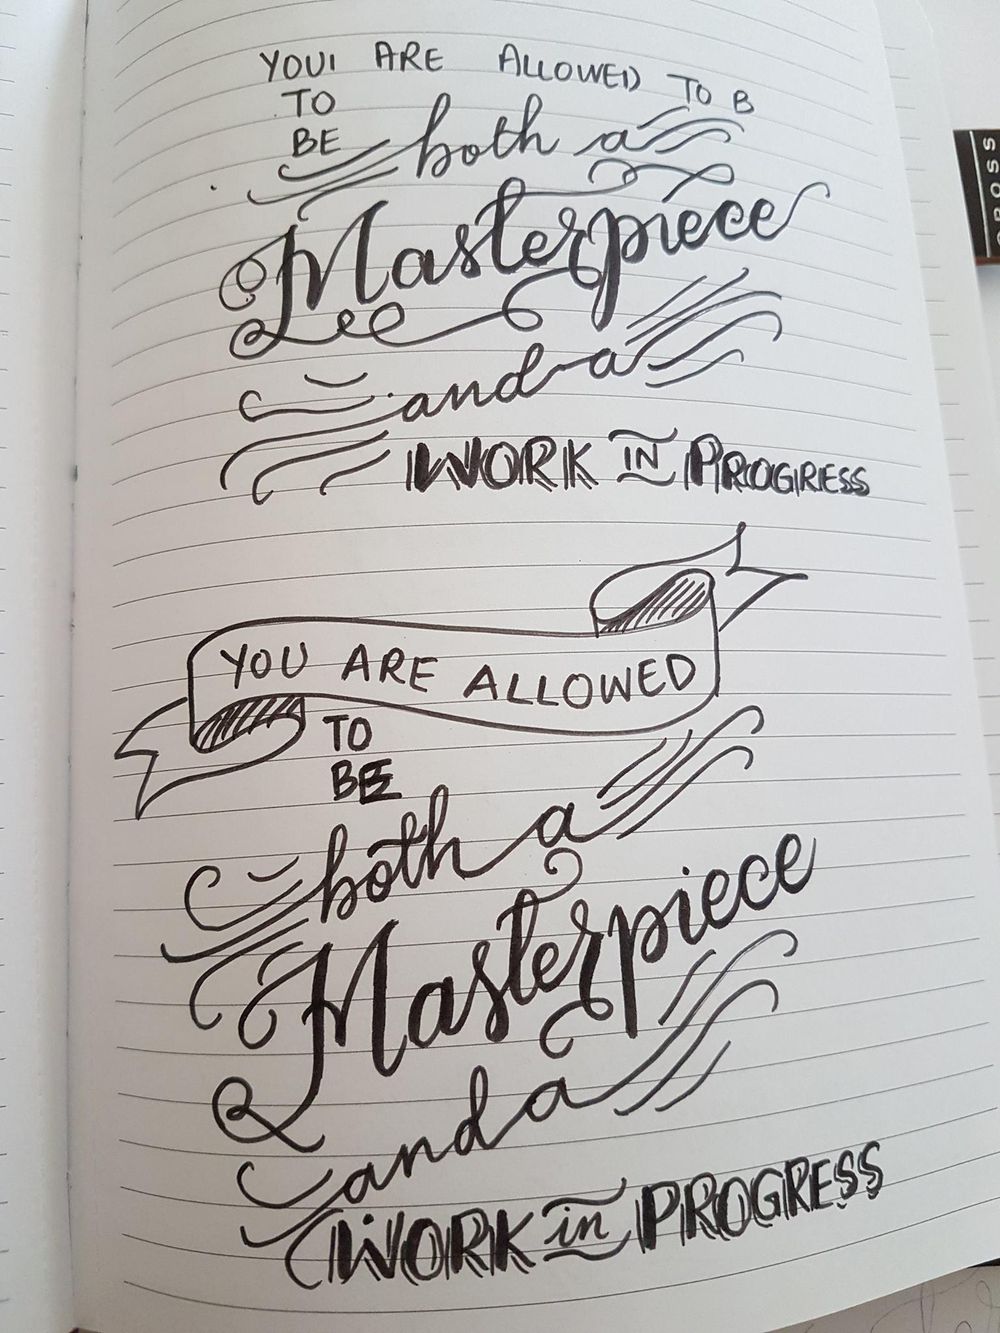 YOU ARE ALLOWED TO B
TO
BE both a
Masterpiece
and a
WORK IN PROGRESS
YOU ARE ALLOWED
TO
BE
both a
Masterpiece
and a
WORK in PROGRESS